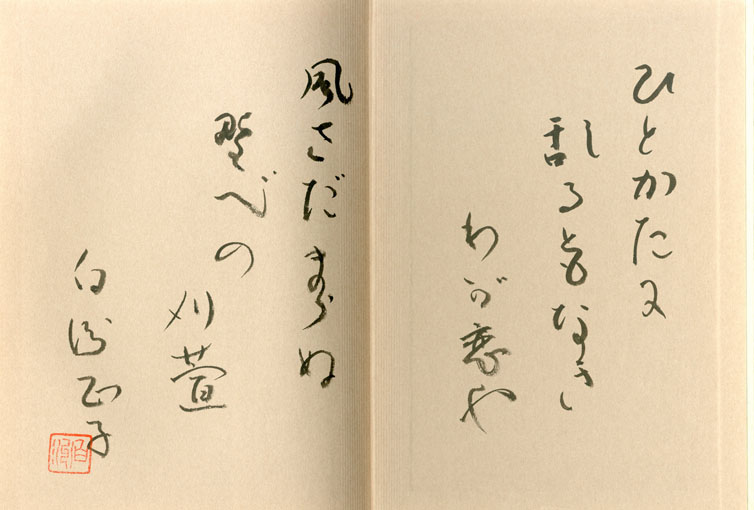 ひとかたに
乱るともなき
わが恋や
風さだまらぬ
野べの
刈萱
白洲正子